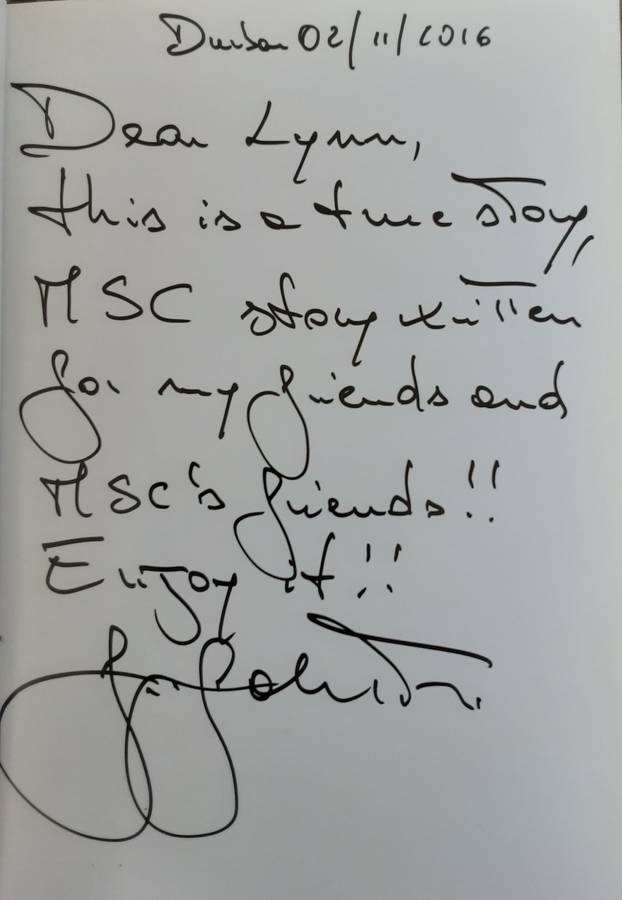 Durban 02/11/2016
Dear Lynn,
this is a true story,
MSC story written
for my friends and
MSC's friends!!
Enjoy it!!